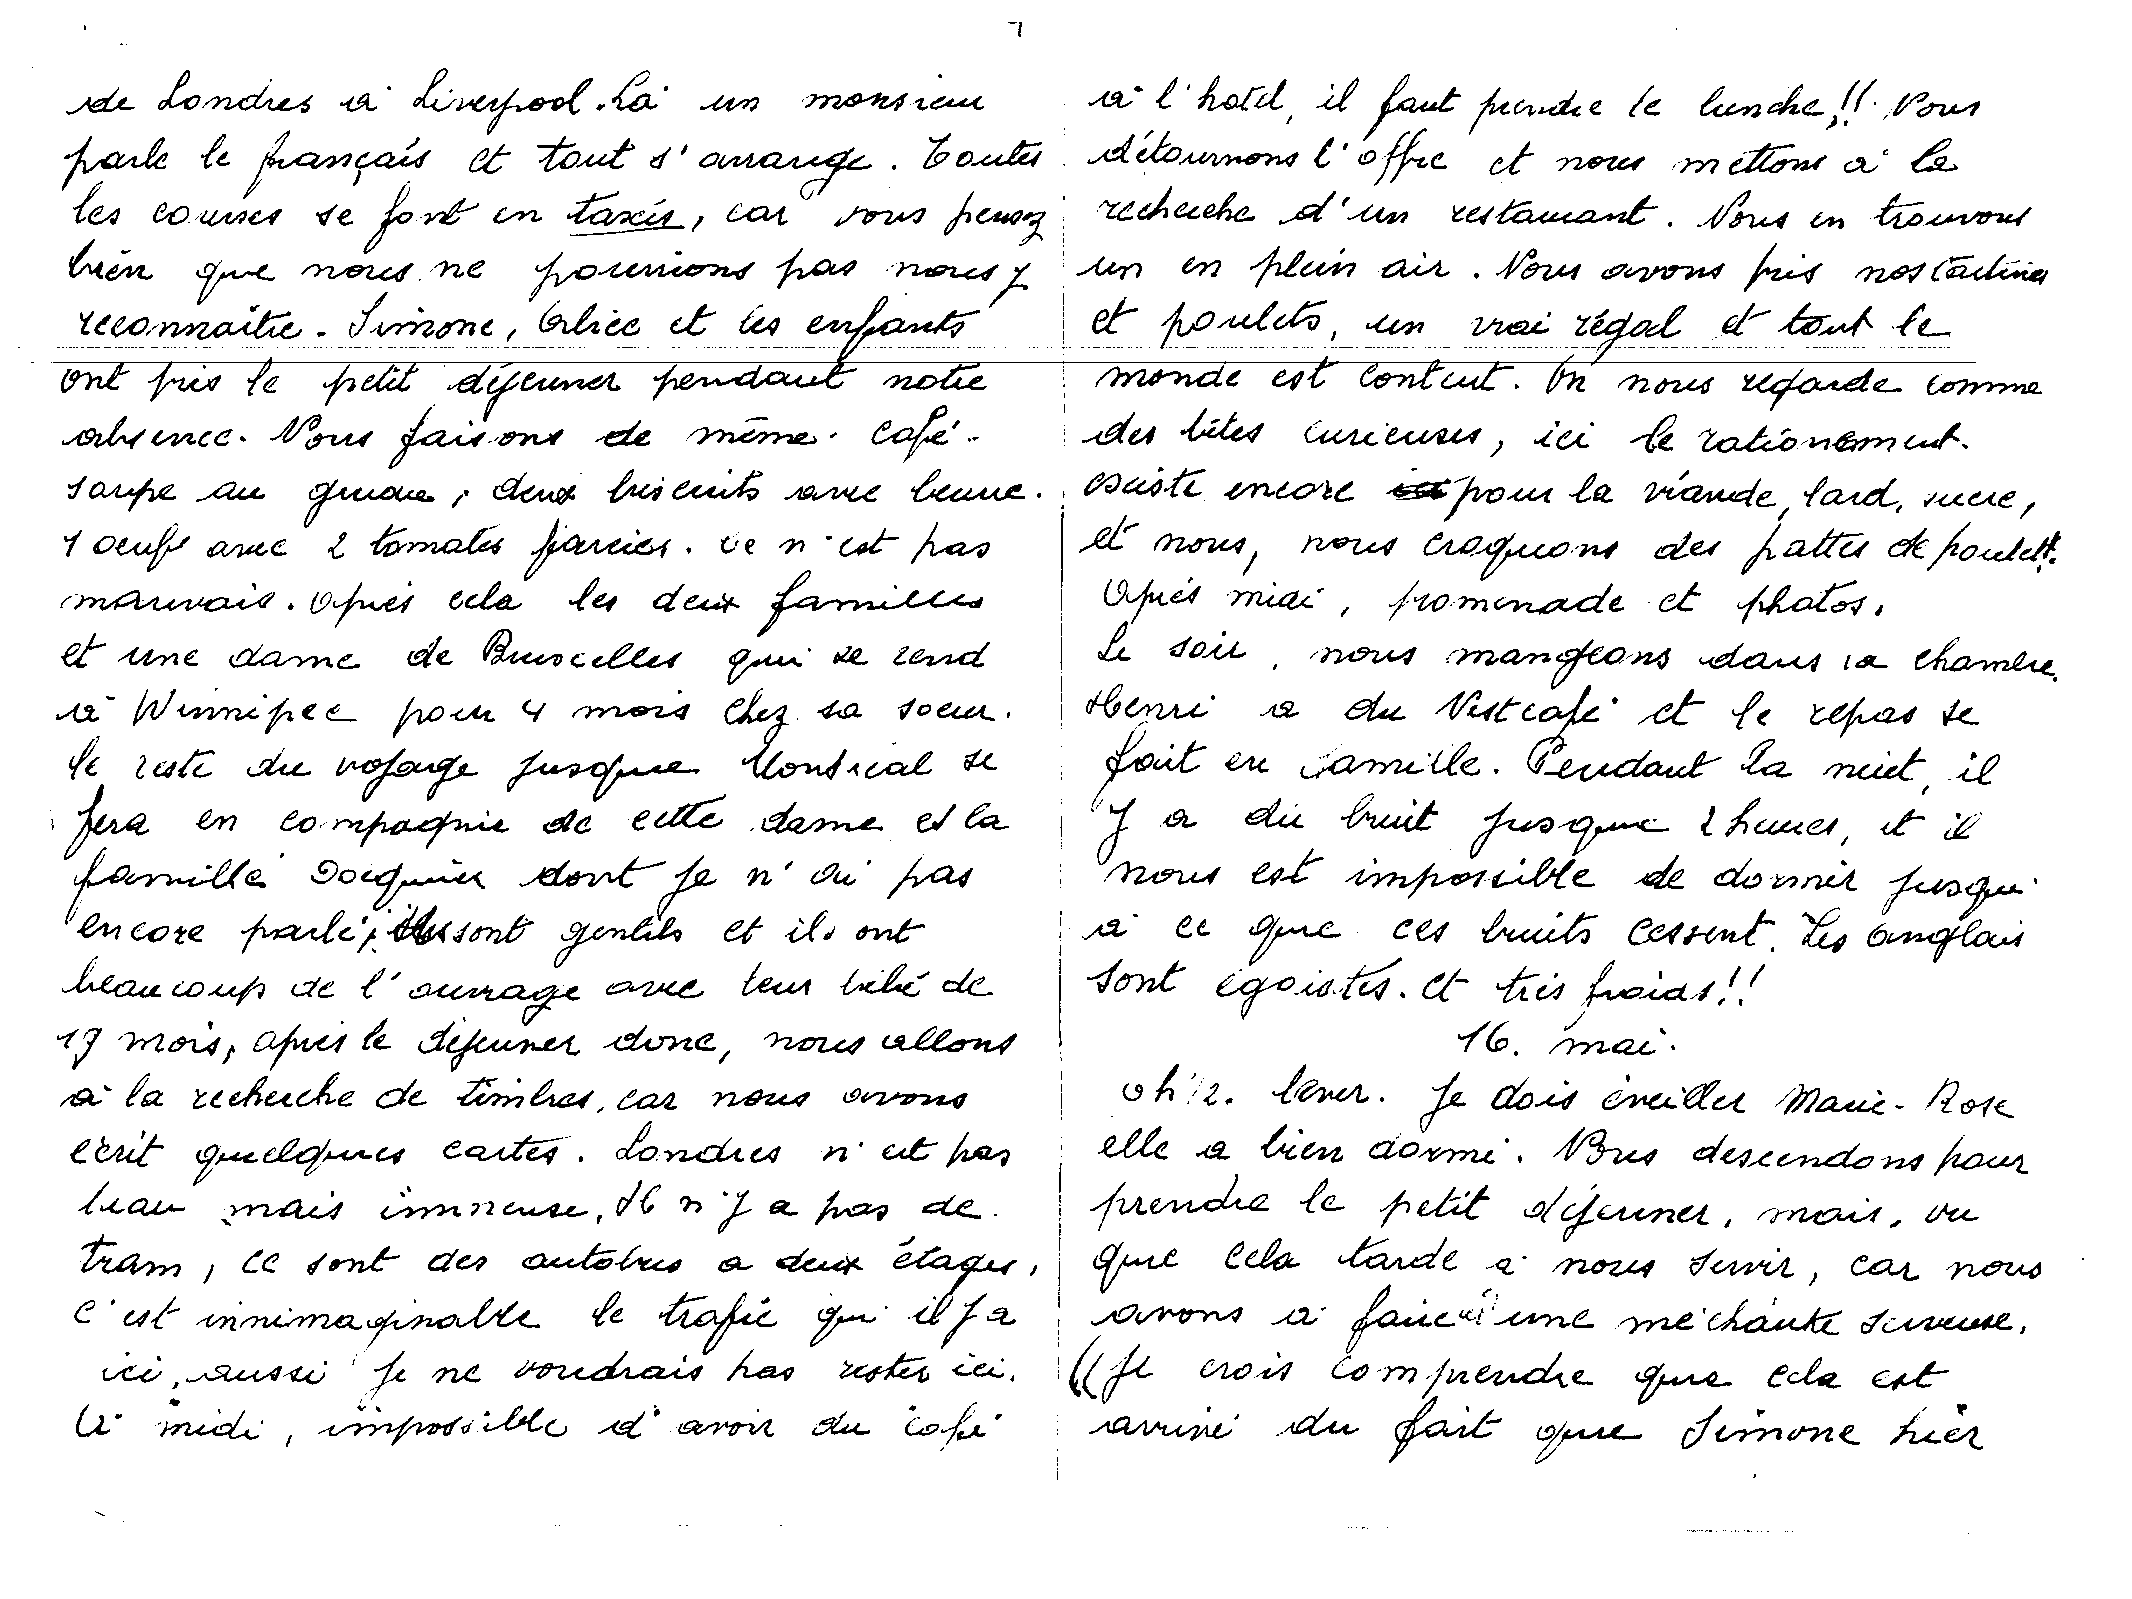 7
de Londres à Liverpool. Là un monsieur
parle le français et tout s'arrange. Toutes
les courses se font en taxis, car vous pensez
bien que nous ne pourrions pas nous y
reconnaître. Simone, Alice et les enfants
ont pris le petit déjeuner pendant notre
absence. Nous faisons de même. Café.
soupe au gruau, deux biscuits avec beurre.
1 oeuf avec 2 tomates farcies. Ce n'est pas
mauvais. Après cela les deux familles
et une dame de Bruxelles qui se rend
à Winnipec pour 4 mois chez sa soeur.
le reste du voyage jusque Montreal se
fera en compagnie de cette dame et la
famille Docquier dont je n'ai pas
encore parlé, ils sont gentils et ils ont
beaucoup de l'ouvrage avec leur bébé de
19 mois, après le déjeuner donc, nous allons
à la recherche de timbres, car nous avons
écrit quelques cartes. Londres n'est pas
beau mais immense, Il n'y a pas de
tram, ce sont des autobus a deux étages,
c'est innimaginable le trafic qu'il y a
ici, aussi je ne voudrais pas rester ici.
A midi, impossible d'avoir du café
à l'hotel, il faut prendre le lunche,!! Nous
détournons l'offre et nous mettons à la
recherche d'un restaurant. Nous en trouvons
un en plein air. Nous avons pris nos tartines
et poulets, un vrai régal et tout le
monde est content. On nous regarde comme
des bêtes curieuses, ici le rationement.
existe encore pour la viande, lard, sucre,
et nous, nous croquons des pattes de poulet!!.
Après midi, promenade et photos.
Le soir, nous mangeons dans la chambre.
Henri a du Nestcafé et le repas se
fait en famille. Pendant la nuit, il
y a du bruit jusque 2 heures, et il
nous est impossible de dormir jusqu'
à ce que ces bruits cessent. Les anglais
sont égoistes. et très froids!!
16. mai.
lever. Je dois éveiller Marie-Rose
elle a bien dormi. Nous descendons pour
prendre le petit déjeuner, mais, vu
que cela tarde à nous servir, car nous
avons à faire à une méchante serveuse.
((Je crois comprendre que cela est
arrivé du fait que Simone hier